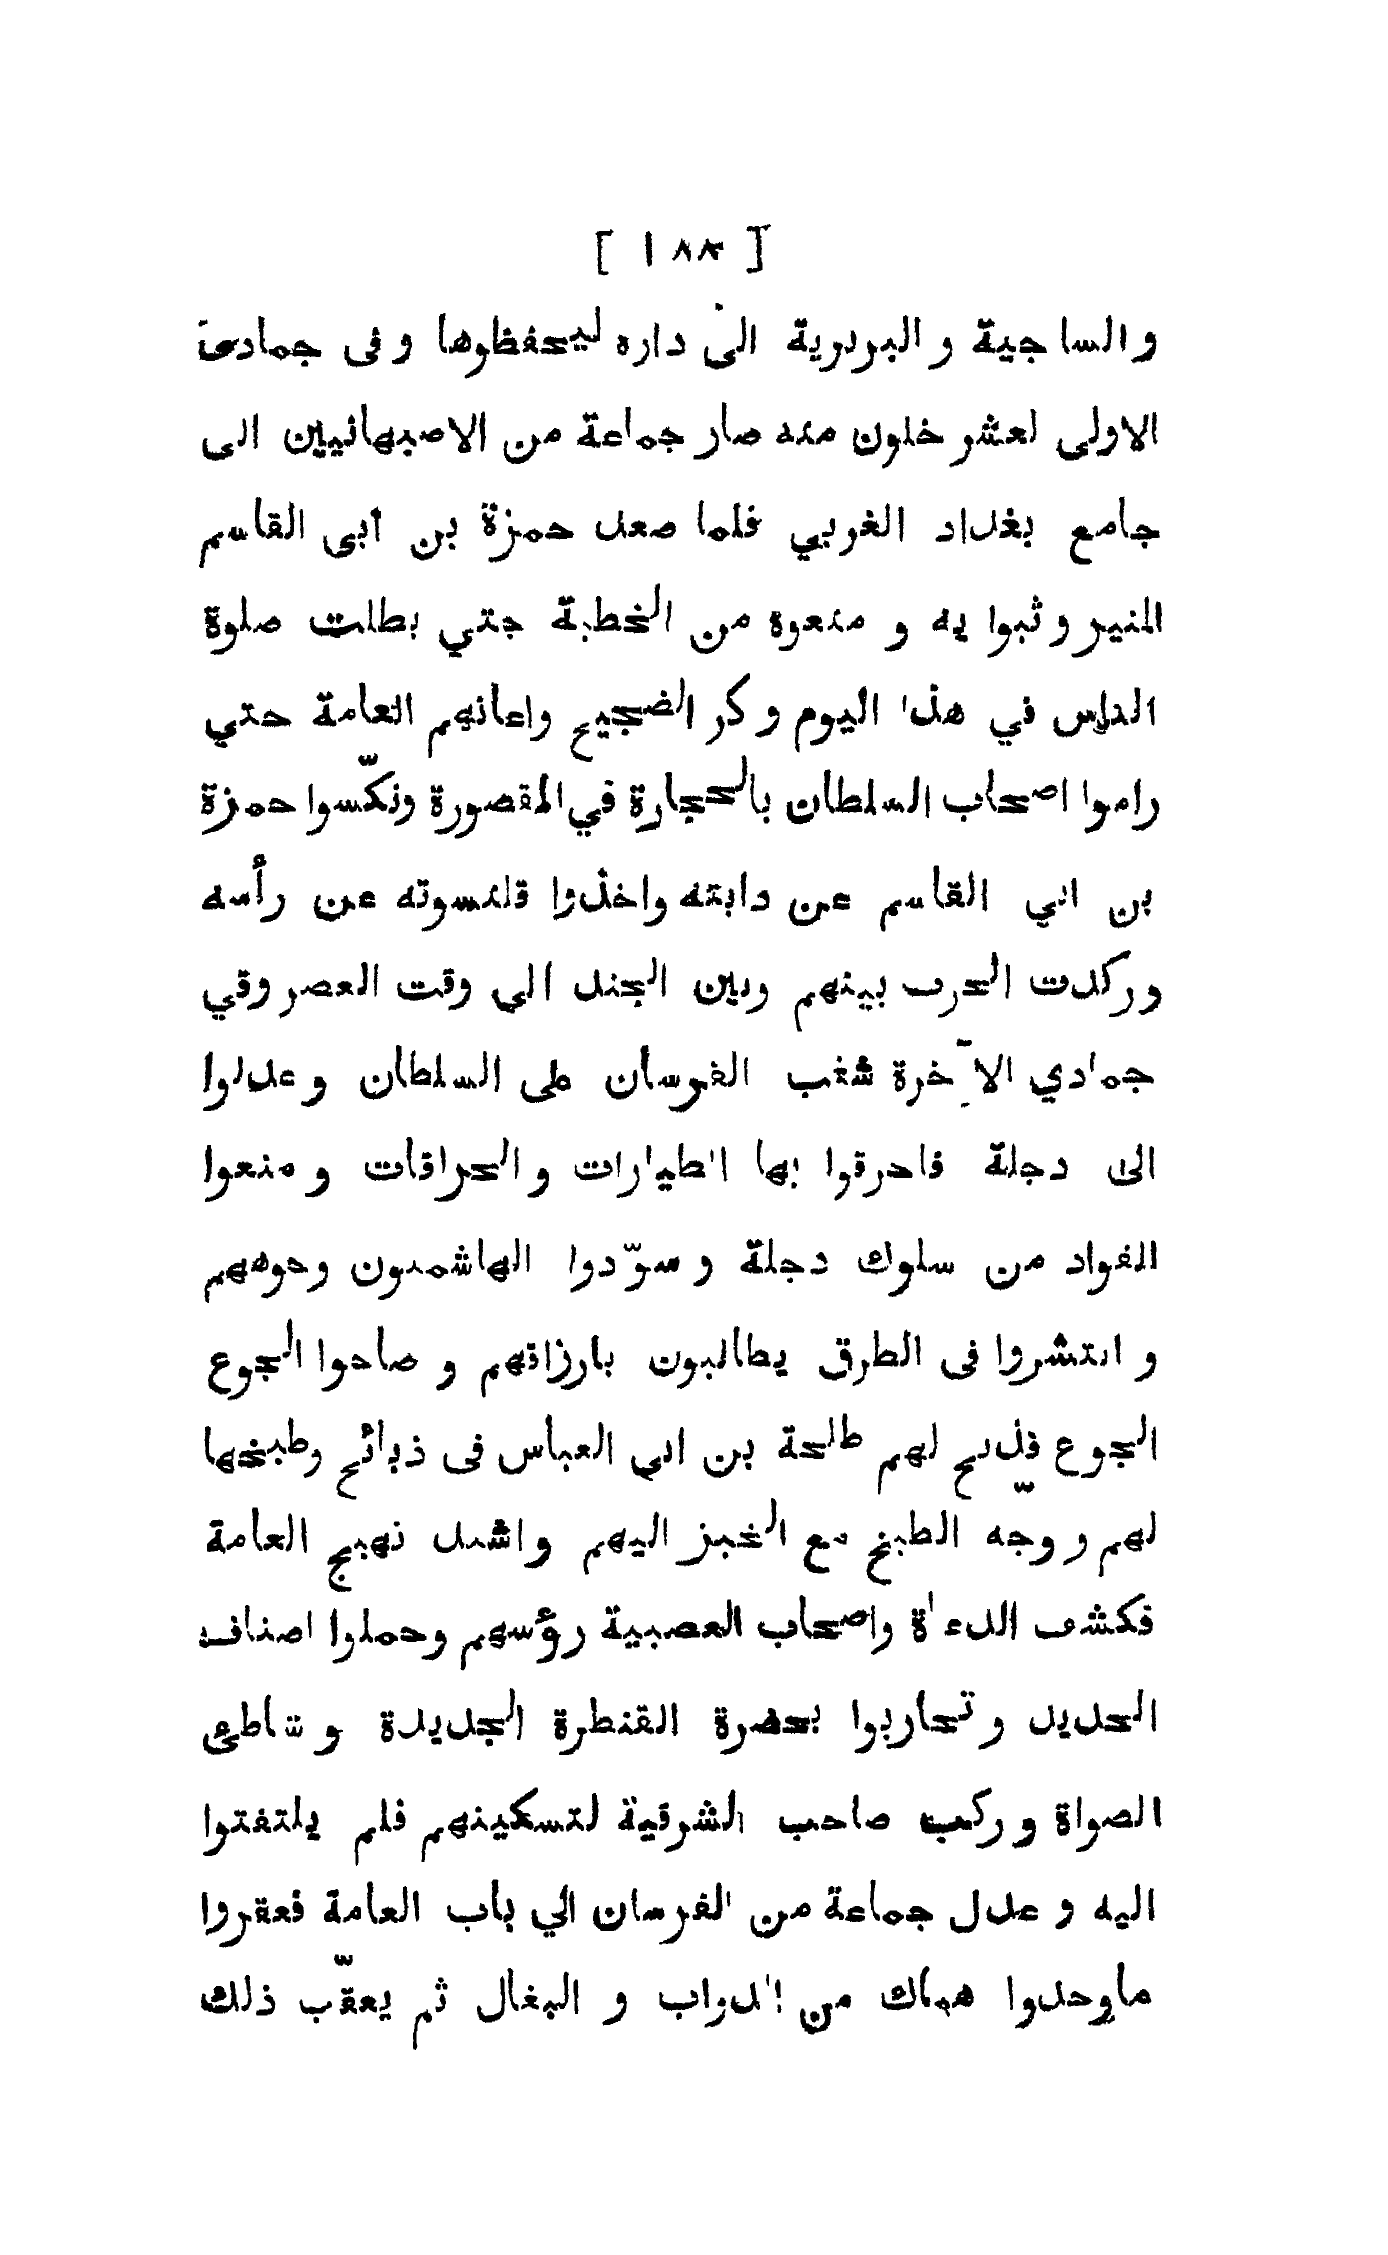 [ ١٨٨ ]
والساجية والبربرية الى داره ليحفظوها وفى جمادى
الاولى لعشر خلون منه صار جماعة من الاصبهانيين الى
جامع بغداد الغربي فلما صعد حمزة بن أبى القاسم
المنبر وثبوا به و منعوه من الخطبة حتي بطلت صلوة
الناس في هذا اليوم وكر الضجيج واعانهم العامة حتي
راموا اصحاب السلطان بالحجارة في المقصورة ونكّسوا حمزة
بن ابي القاسم عن دابته واخذوا قلنسوته عن رأسه
وركدت الحرب بينهم وبين الجند الي وقت العصر وفي
جمادي الآخرة شغب الفرسان على السلطان و عدلوا
الى دجلة فاحرقوا بها الطيارات و الحراقات و منعوا
القواد من سلوك دجلة و سوّدوا الهاشميون وجوههم
و انتشروا فى الطرق يطالبون بارزاقهم و صاحوا الجوع
الجوع فذبح لهم طلحة بن ابي العباس فى ذبائح وطبخها
لهم و وجه الطبخ مع الخبز اليهم واشتد تهيج العامة
فكشف الدعاة واصحاب العصبية رؤسهم وحملوا اصناف
الحديد وتحاربوا بحضرة القنطرة الجديدة و شاطئ
الصراة و ركب صاحب الشرقية لتسكينهم فلم يلتفتوا
اليه و عدل جماعة من الفرسان الي باب العامة فعقروا
ماوجدوا هناك من الدواب و البغال ثم يعقّب ذلك